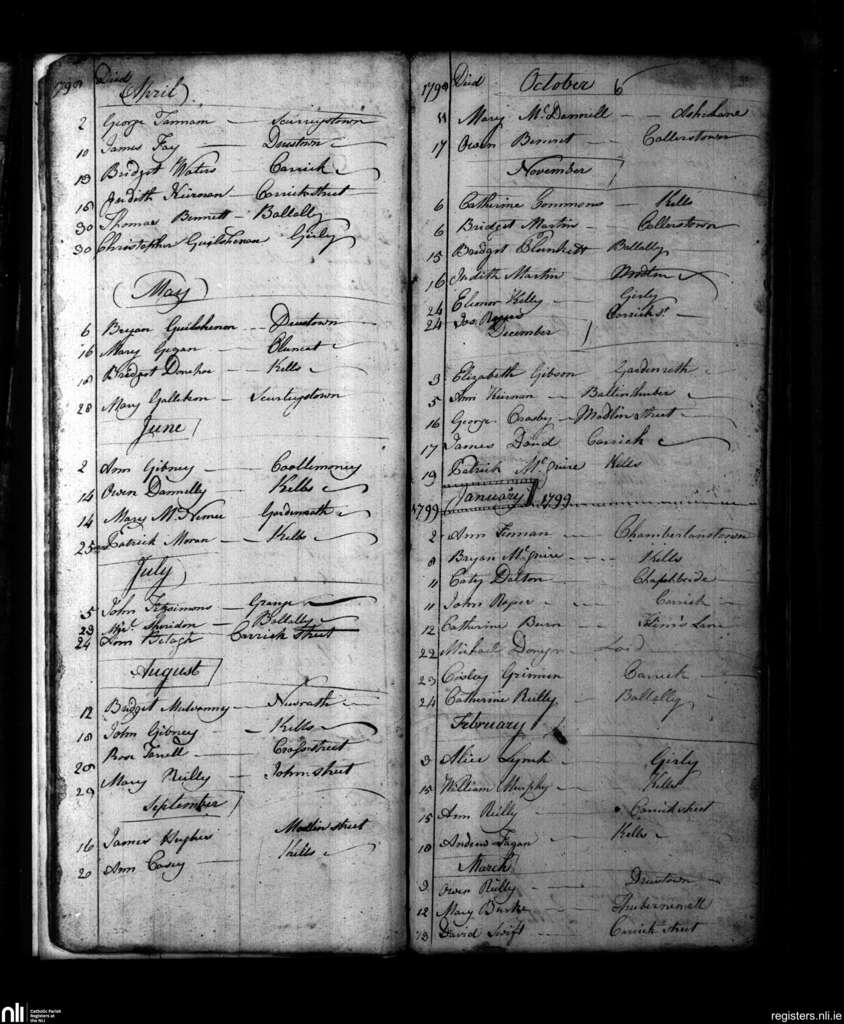 1798 Died
April
2 George Tannam - Scurrigstown
10 James Fay - Drewstown
13 Bridget Waters Carrick
16 Judith Kiernan - Carrick street
30 Thomas Bennett - Ballally
30 Christopher Guilshenan Girly
May
6 Bryan Guilshenon - - Drewstown
16 Mary Gegan -
18 Bridget - Kells
28 Mary - Scurlogstown
June
2 Ann Gibney -
14 Owen Dannelly Kells
14 Mary Gardenrath
25 Patrick Moran - Kells
July
5 John Fitzsimons - Grange
23 Sheridon - Ballally
24 Carrick street
August
12 Bridget Mulvanney - Newrath
18 John Gibney - Kells
20 Rose Farrell - Cross street
29 Mary Reilly - John street
September
16 James Hughes Modlin street
20 Ann Casey - Kells
1798 Died October
11 Mary Mc Donnell - -
17 Owen Bennet - - Callerstown
November
6 Catherine Gommons - Kells
6 Bridget Martin - - Callerstown
15 Bridget Blunkett Ballally
16 Judith Martin -
24 Elienor Kelly - Girly
24 Carrick st
December
3 Elizabeth Gibson Gardenrath
5 Ann Kiernan - Ballinthuber
16 George Crosby - Modlin street
17 James Doud Carrick
19 Patrick Mc Guire Kells
1799 January 1799
2 Ann Finnan - Chamberlanstown
Bryan McGuire - - - Kells
11 Caty Dalton - - -
11 John Roper - - Carrick
12 Catherine Burn - - Lane
22 Michael -
23 Grimen Carrick
24 Catherine Reilly - Ballally
February
Alice Lynch - Girly
15 William Murphy - Kells
15 Ann Reilly - Carrick street
18 Andrew Fagan - Kells
March
9 Owen Reilly - - Drewstown
12 Mary Burke -
13 David Swift - - Carrick street
nli
Catholic Parish
Registers at
the NLI
registers.nli.ie